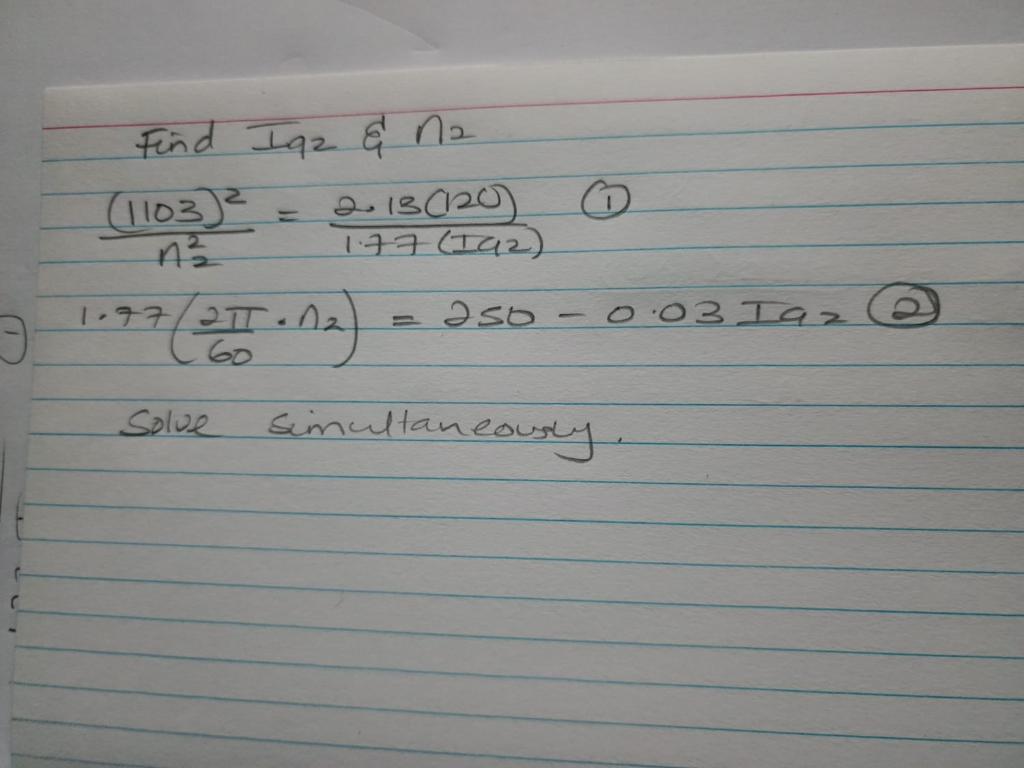 Find Ia2 & n2
(1103)² / n2² = 2.13(120) / 1.77(Ia2) ①
1.77(2π/60 · n2) = 250 - 0.03 Ia2 ②
Solve simultaneously.